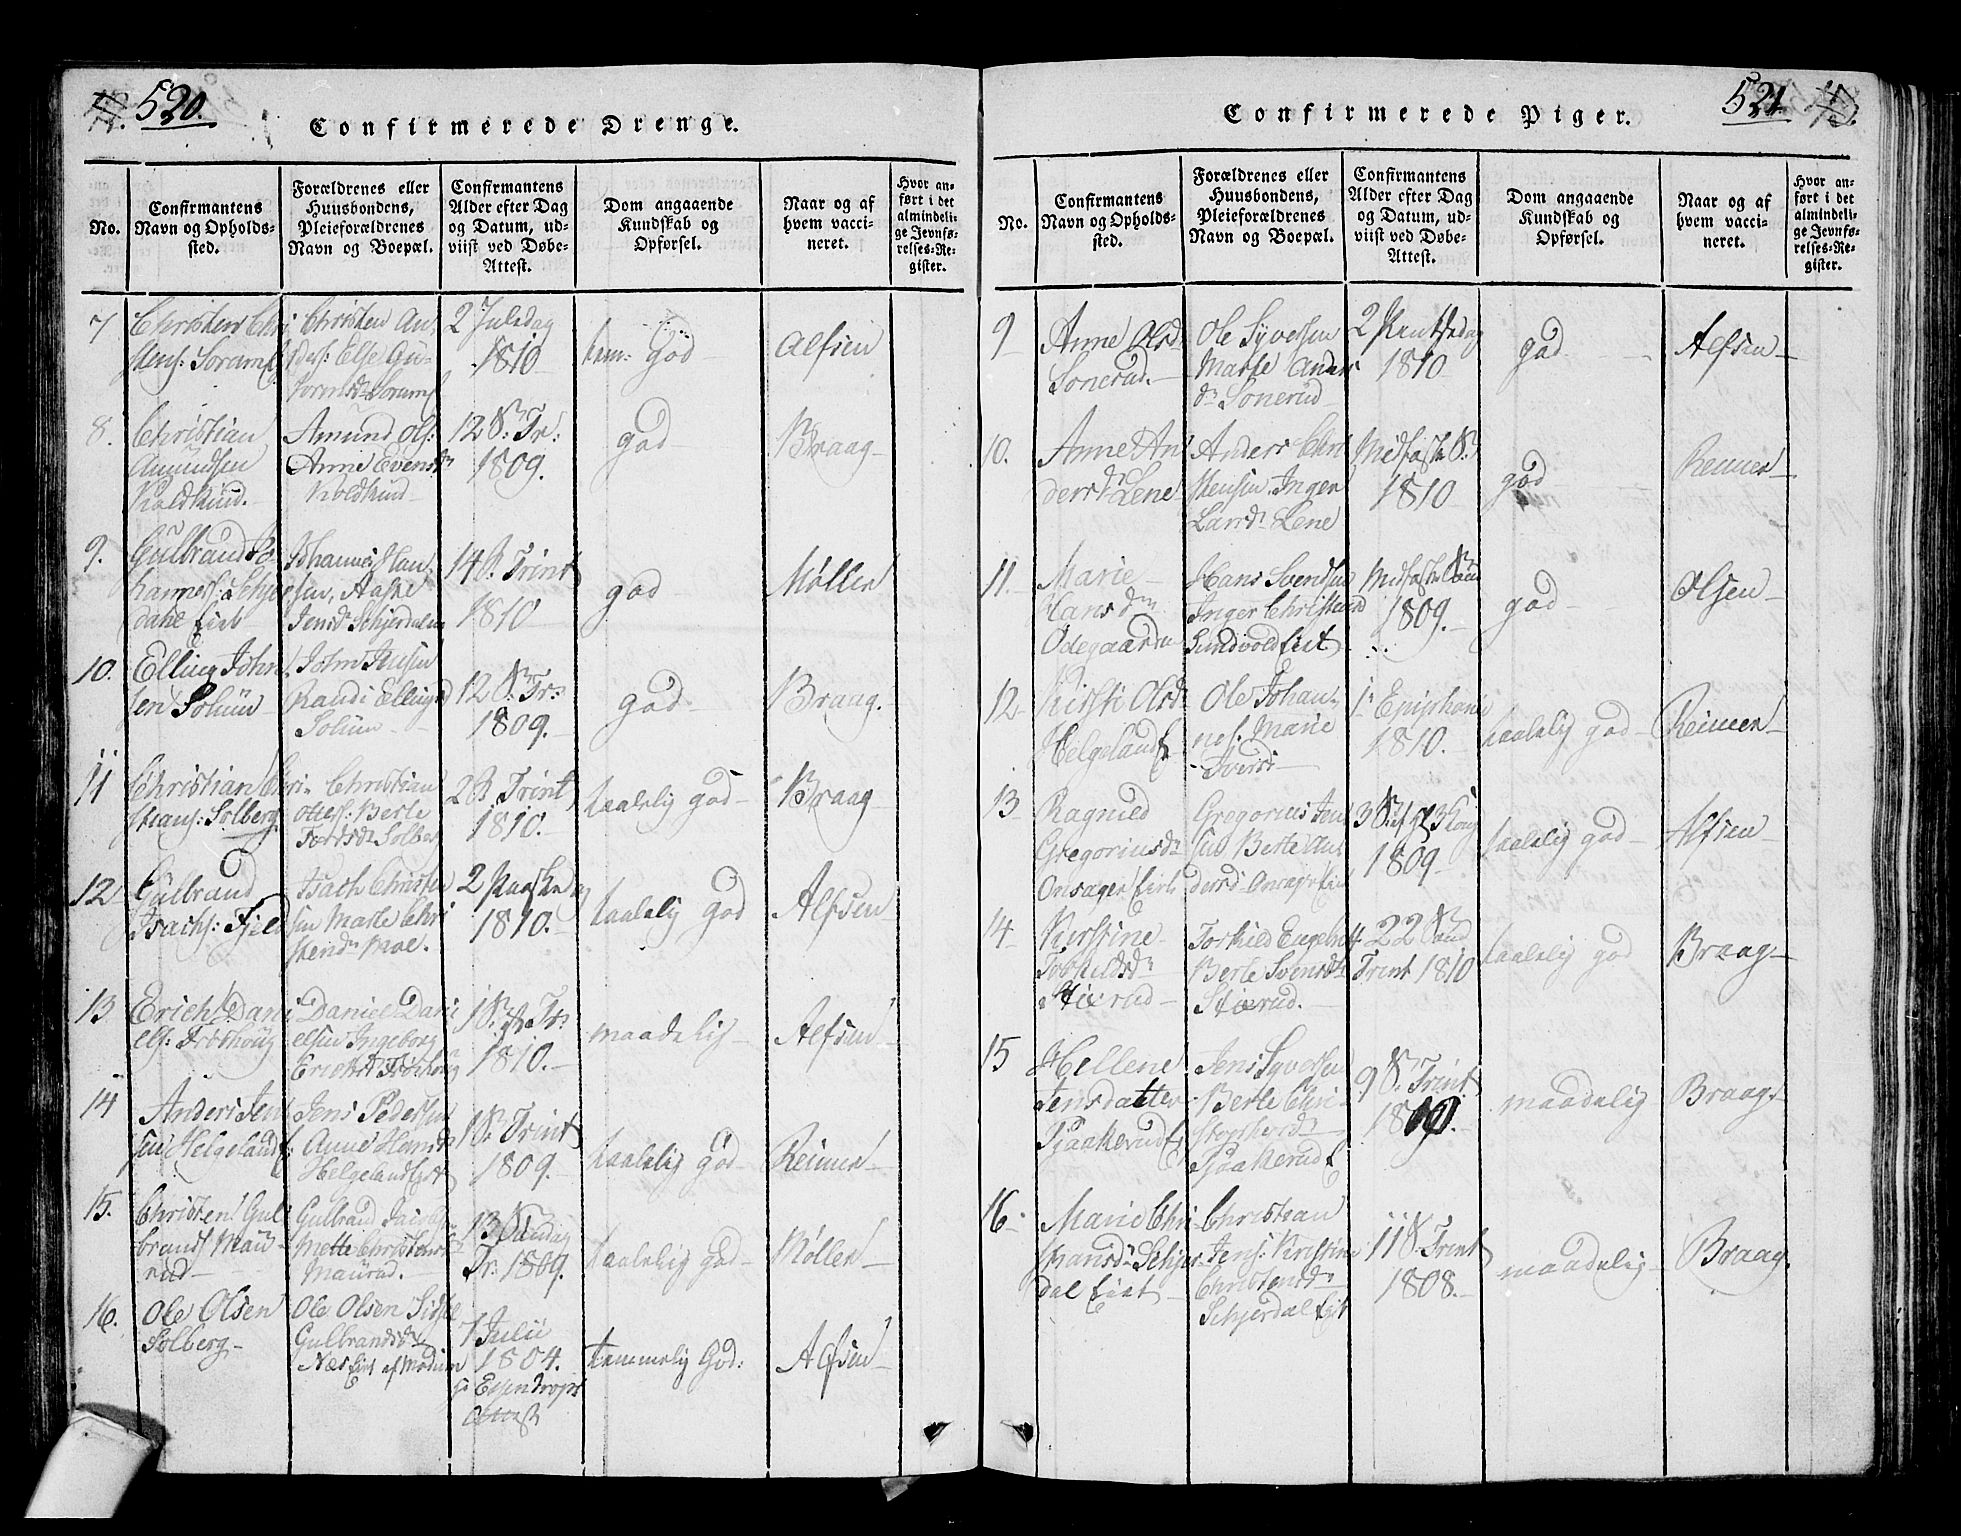 520.
Confirmerede Drenge.
No.
Confirmantens
Navn og Opholds-
sted.
Forældrenes eller
Huusbondens,
Pleieforældrenes
Navn og Boepæl.
Confirmantens
Alder efter Dag
og Datum, ud-
viist ved Døbe-
Attest.
Dom angaaende
Kundskab og
Opførsel.
Naar og af
hvem vacci-
neret.
Hvor an-
ført i det
almindeli-
ge Jevnfø-
relses-Re-
gister.
7
Christen Chri
stens:
Christen An
ders: Else Gu-
2 Juledag
1810
tem: God
Alfsen
8.
Christian
Amundsen
Koldkind.
Amund Ols:
Anne Evensdr
Koldkind
12 S. Tr:
1809.
god
Braag
9.
Gulbrand Jo
hanness: Schjer
dahl Eiet
Johannes Han
sen, Aaste
Jensd Schjerdalen
14 S. Trint
1810
god
Møller
10.
Elling John
sen Solum
John
Randi Ellingsd
Solum
12 S. Tr:
1809.
god
Braag.
11
Christian Chri
stians: Solberg
Christian
Ottes: Berte
Solberg
2 S. Trint
1810.
taalelig god
Braag
12
Gulbrand
Isachs: Fjeld
Isach Christen
sen Marte Chri
stensdr Moe.
2 Paaskedag
1810.
taalelig god
Alfsen
13
Erich Dani
els: Frøshoug
Daniel Dani
elsen Ingeborg
Erichsd Frøshoug
1 S. Tr:
1810.
maadelig
Alfsen
14
Anders Jen
sen Helgeland E:
Jens Pedersen
Anne Hansd
Helgelandseiet
1 S. Trint
1809.
taalelig god
Reimer
15.
Christen Gul
brands Mau
rud
Gulbrand Jacobs
Mette Christensd
Maurud.
13 Søndag
Tr: 1809.
taalelig god
Møller
16.
Ole Olsen
Solberg
Ole Olsen Sidsel
Gulbrandsdr
Næs Eiet af Modum
7 Julii
1804.
Essendrops
Attest
temmelig God:
Alfsen
521.
Confirmerede Piger.
No.
Confirmantens
Navn og Opholds-
sted.
Forældrenes eller
Huusbondens,
Pleieforældrenes
Navn og Boepæl.
Confirmantens
Alder efter Dag
og Datum, ud-
viist ved Døbe-
Attest.
Dom angaaende
Kundskab og
Opførsel.
Naar og af
hvem vacci-
neret.
Hvor an-
ført i det
almindeli-
ge Jevnfø-
relses-Re-
gister.
9
Anne Olsd
Sonerud.
Ole Syversen
Marte Anders
dr Sonerud
2 Pintsedag
1810
god
Alfsen
10.
Anne An
dersdr Lene
Anders Chri
stensen Inger
Larsdr Lene
Midfaste S.
1810
god
Reimer
11.
Marie
Hansdr
Ødegaarden
Hans Svendsen
Inger Christensd
Sundvold Eiet
Midfaste Søn
1809.
god
Olsen
12
Kirsti Olsdr
Helgeland E
Ole Johan
nes. Marie
Iversd
1 Epiphania
1810.
taalelig god
Reimer
13
Ragnild
Gregoriusdr
Onsager Eiet
Gregorius Jen
sen Berte An
dersd Onsager Eiet
1809
taalelig god
Alfsen
14
Kirstine
Torkildsdr
Stixrud
Torkild Engebret
Berte Svensdr
Stixrud.
22 Sønd
Trint 1810
taalelig god
Braag
15
Hellene
Jensdatter
Pjaakerud E
Jens Syversen
Berte Chri
stophersdr
Pjaakerud E
9 S. Trint
maadelig
Braag
16
Marie Chri
stiansdr Schjer
dal Eiet
Christian
Jens: Kristine
Christensdr
Schjerdal Eiet
11 S. Trint
1808.
maadelig
Braag.